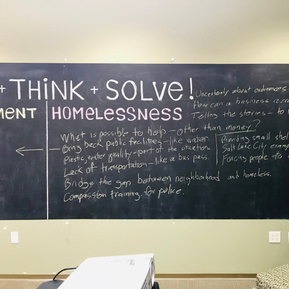 + THiNK + SOLVE!
MENT
HOMELESSNESS
What is possible to help - other than money?
Bring back public facilities - like
Plastic, water quality - part of the situation
Lack of transportation - like a bus pass.
Bridge the gap between neighborhood and homeless.
Compassion training for police.
Uncertainty about
How can a business
Telling the stories - to
Providing small
Salt Lake City